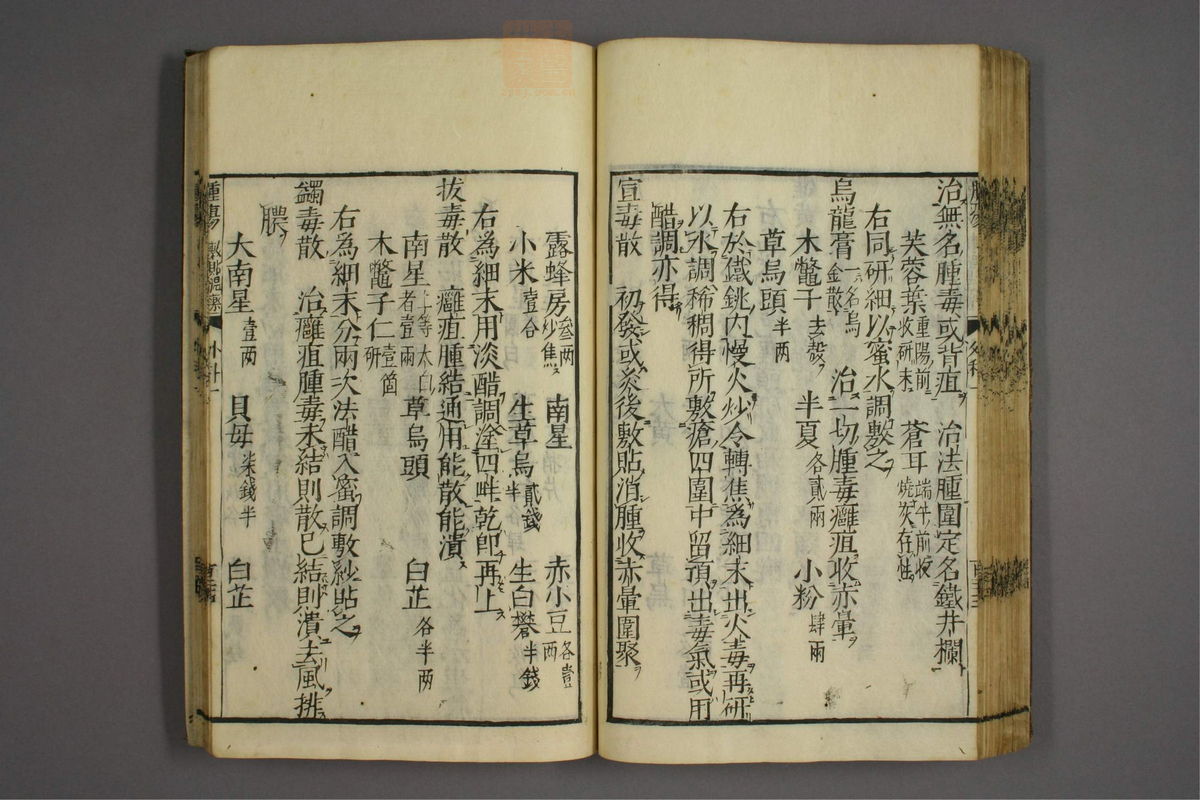 治無名腫毒或背疽 治法腫圍定名鐵井欄
芙蓉葉重陽前收研末 蒼耳端午前收燒灰存性
右同研細以蜜水調敷之
烏龍膏一名烏金散 治一切腫毒癰疽收赤暈
木鼈子去殼 半夏各貳兩 小粉肆兩
草烏頭半两
右於鐵銚內慢火炒令轉焦為細末出火毒再研
以水調稀稠得所敷瘡四圍中留頂出毒氣或用
醋調亦得
宣毒散 初發或灸後敷貼消腫收赤暈圍聚
露蜂房叁两炒焦 南星 赤小豆各壹两
小米壹合 生草烏貳錢半 生白礬半錢
右為細末用淡醋調塗四畔乾即再上
拔毒散 癰疽腫結通用能散能潰
南星上等大白者壹兩 草烏頭 白芷各半两
木鼈子仁壹箇研
右為細末分兩次法醋入蜜調敷紗貼之
蠲毒散 治癰疽腫毒未結則散已結則潰去風排
膿
大南星壹两 貝母柒錢半 白芷
腫瘍 外科一